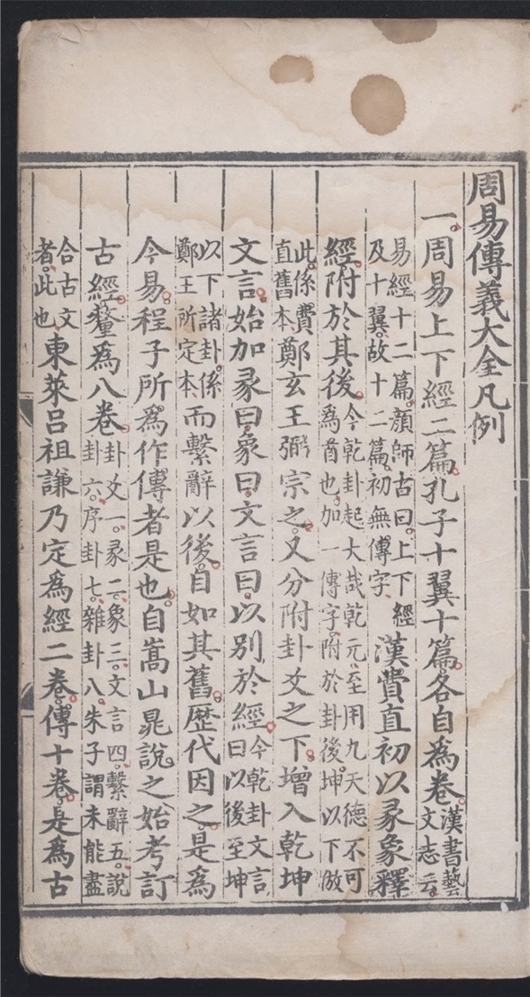 周易傳義大全凡例
一周易上下經二篇孔子十翼十篇各自為卷漢書藝文志云
易經十二篇顏師古曰上下經及十翼故十二篇初無傳字漢費直初以彖象釋
經附於其後今乾卦起大哉乾元至用九天德不可為首也加一傳字附於卦後坤以下倣
此係費直舊本鄭玄王弼宗之又分附卦爻之下增入乾坤
文言始加彖曰象曰文言曰以別於經今乾卦文言曰以後至坤
以下諸卦係鄭王所定本而繫辭以後自如其舊歴代因之是為
今易程子所為作傳者是也自嵩山晁說之始考訂
古經釐為八卷卦爻一彖二象三文言四繫辭五說卦六序卦七雜卦八朱子謂未能盡
合古文者此也東萊呂祖謙乃定為經二卷傳十卷是為古